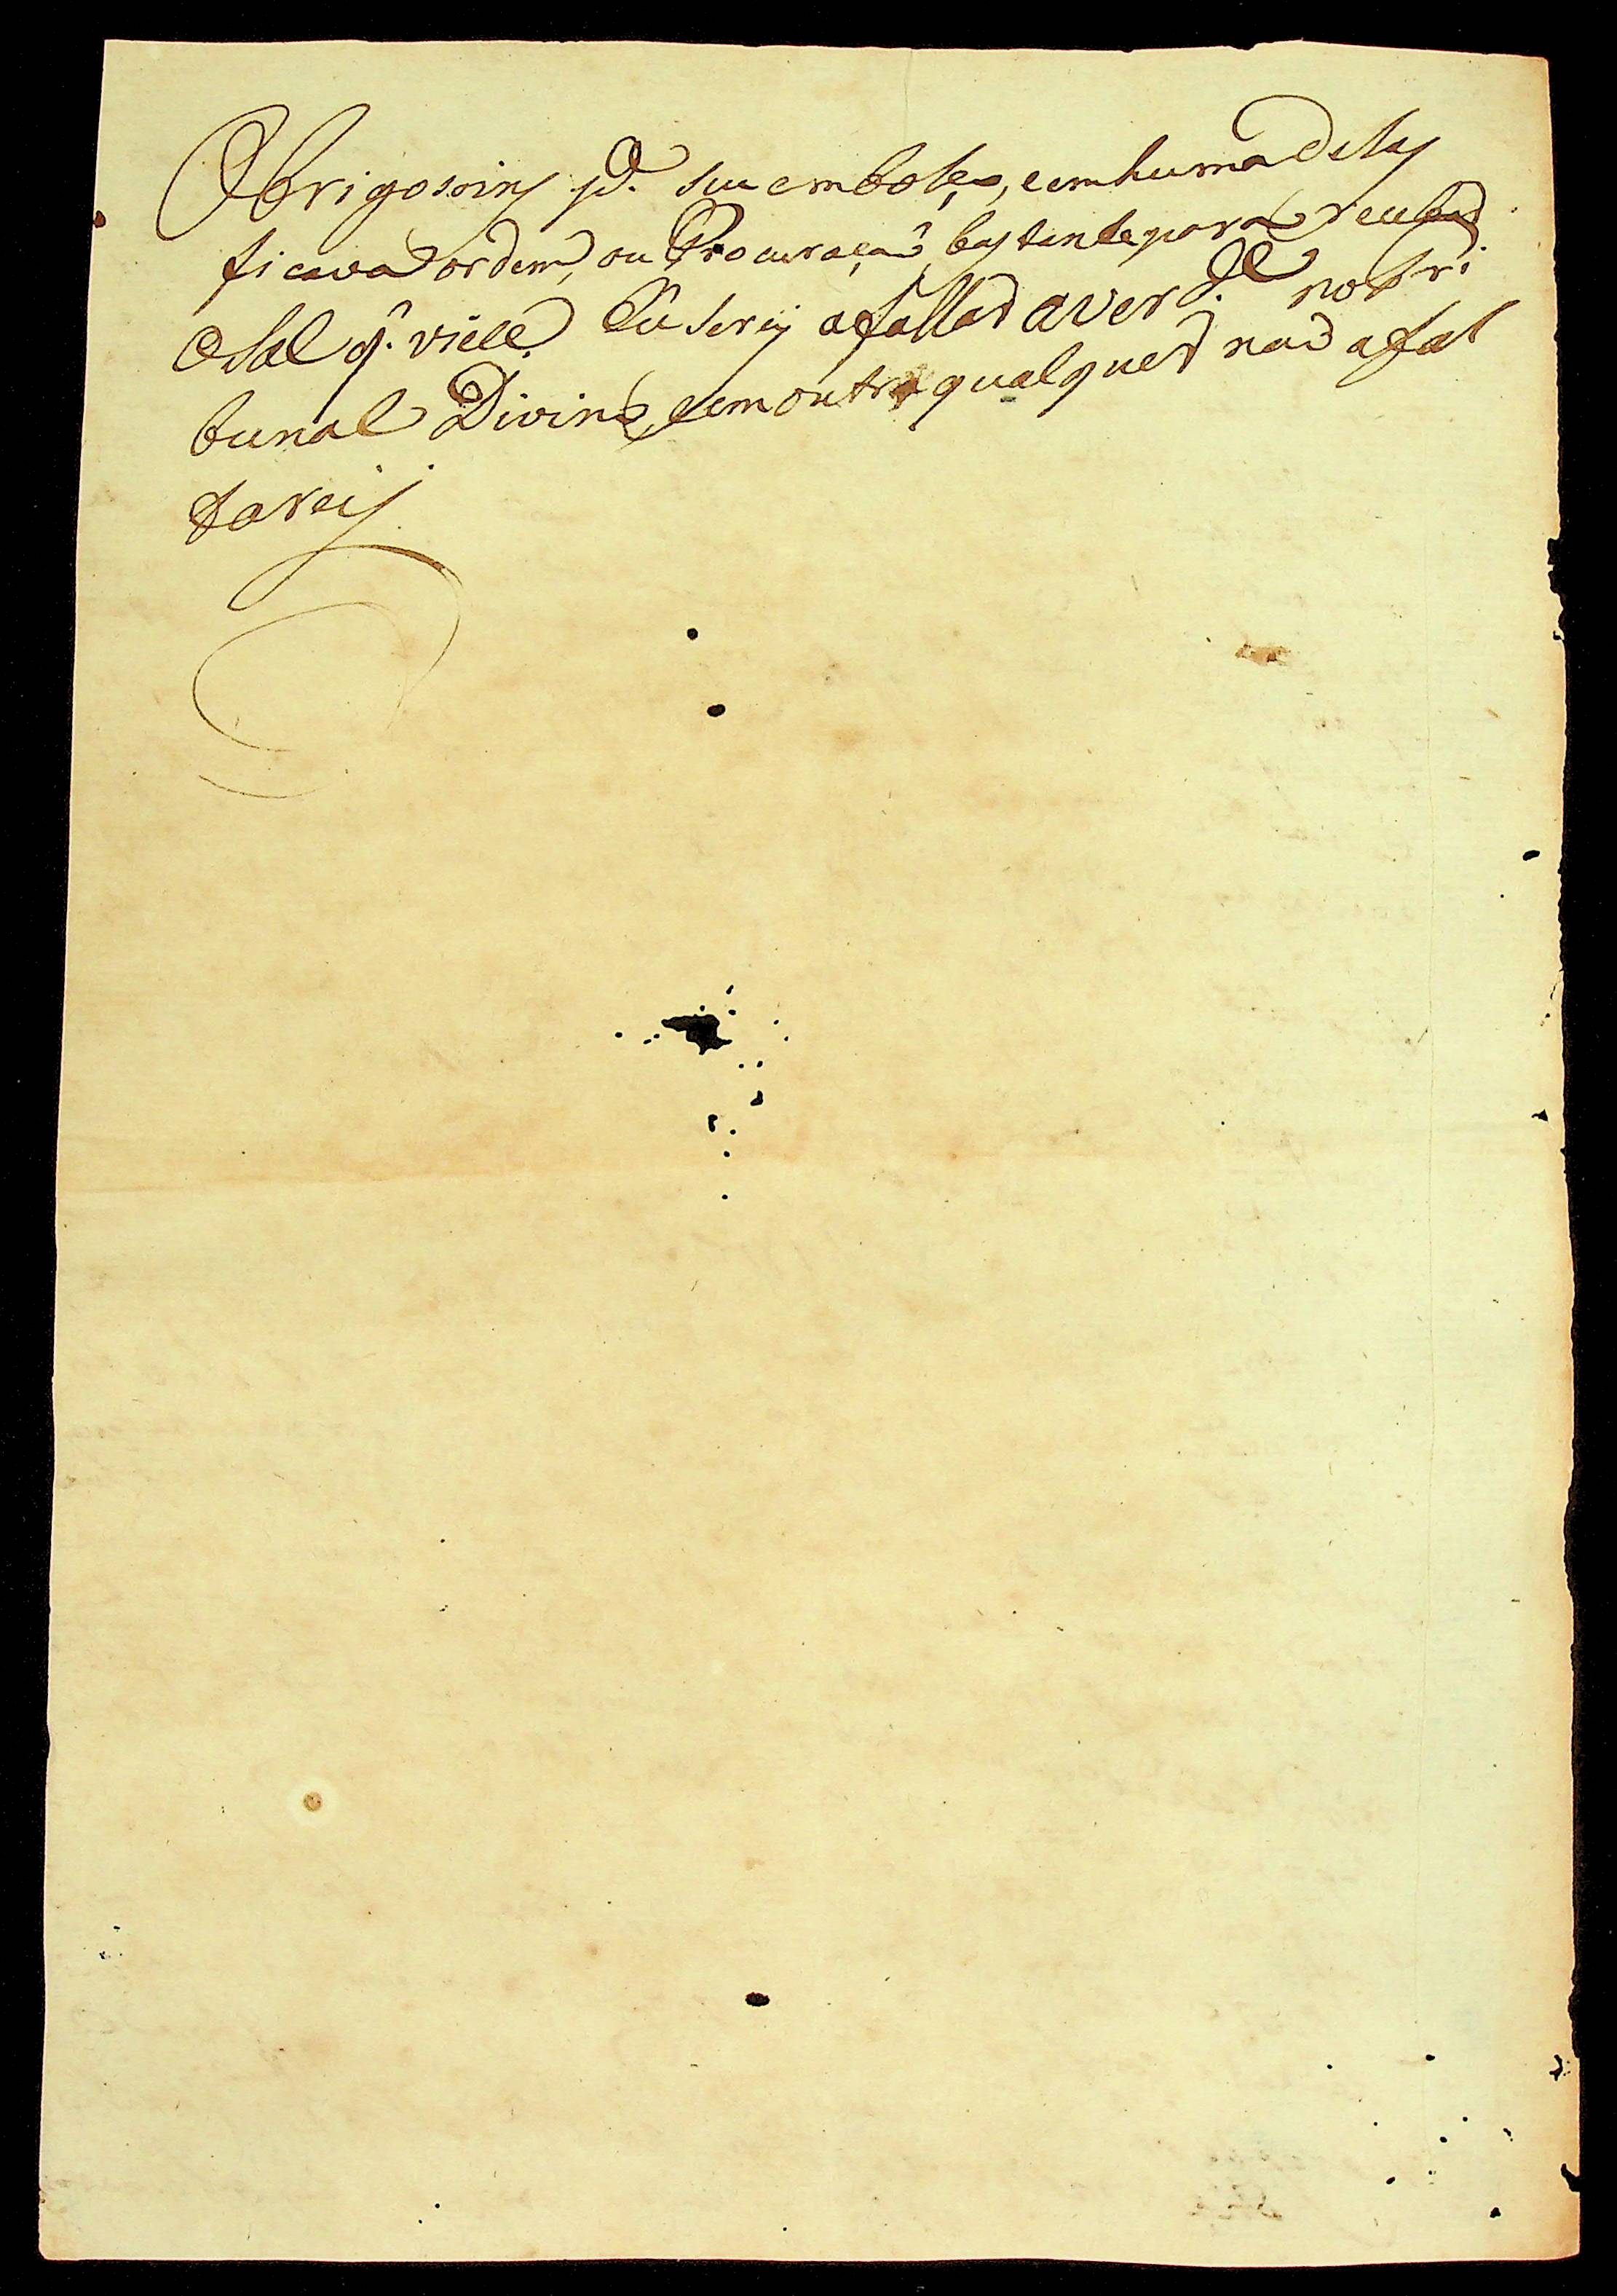 Obrigosoins pᵃ. suu embolço, eemhuma delas
ficava ordem, ou Procuração bastante para receber
o Sal q̃. viece. Eu serey afallar a verdᵉ. no tri
bunal Divino, eem outro qualquer não afal
tarey.